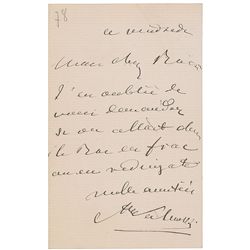 78
ce vendredi
Mon cher
J'ai oublié de
vous demander
si on allait dans
le Bac en frac
ou en redingote
mille amitiés